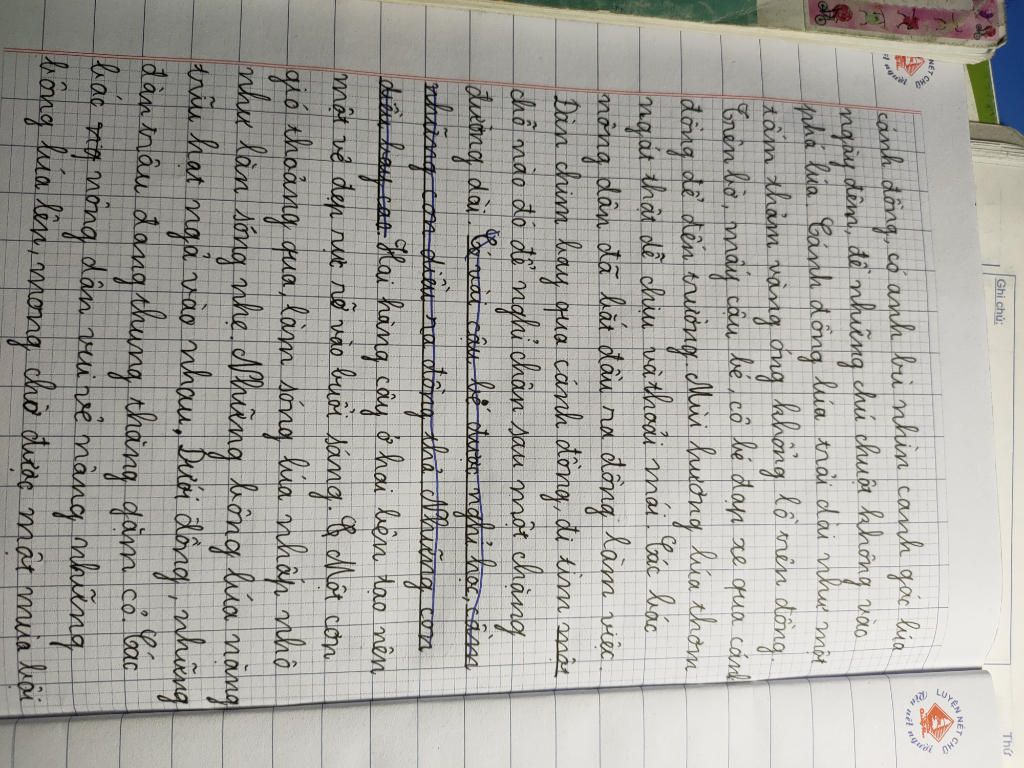 cánh đồng, có anh bù nhìn canh gác lúa
ngày đêm, để những chú chuột không vào
phá lúa. Cánh đồng lúa trải dài như một
tấm thảm vàng óng khổng lồ trên đồng.
Trên bờ, mấy cậu bé, cô bé đạp xe qua cánh
đồng để đến trường. Mùi hương lúa thơm
ngát thật dễ chịu và thoải mái. Các bác
nông dân đã bắt đầu ra đồng làm việc.
Đàn chim bay qua cánh đồng, đi tìm một
chỗ nào đó để nghỉ chân sau một chặng
đường dài. Có vài cậu bé được nghỉ học, cầm
những con diều ra đồng thả Những con
diều bay cao Hai hàng cây ở hai bên tạo nên
một vẻ đẹp rực rỡ vào buổi sáng. Một cơn
gió thoảng qua, làm sóng lúa nhấp nhô
như làn sóng nhẹ. Những bông lúa nặng
trĩu hạt ngả vào nhau. Dưới đồng, những
đàn trâu đang thung thăng gặm cỏ. Các
bác nông dân vui vẻ nâng những
bông lúa lên, mong chờ được một mùa bội
LUYỆN NÉT CHỮ
Rèn nết người
NÉT CHỮ
Ghi chú:
Thứ